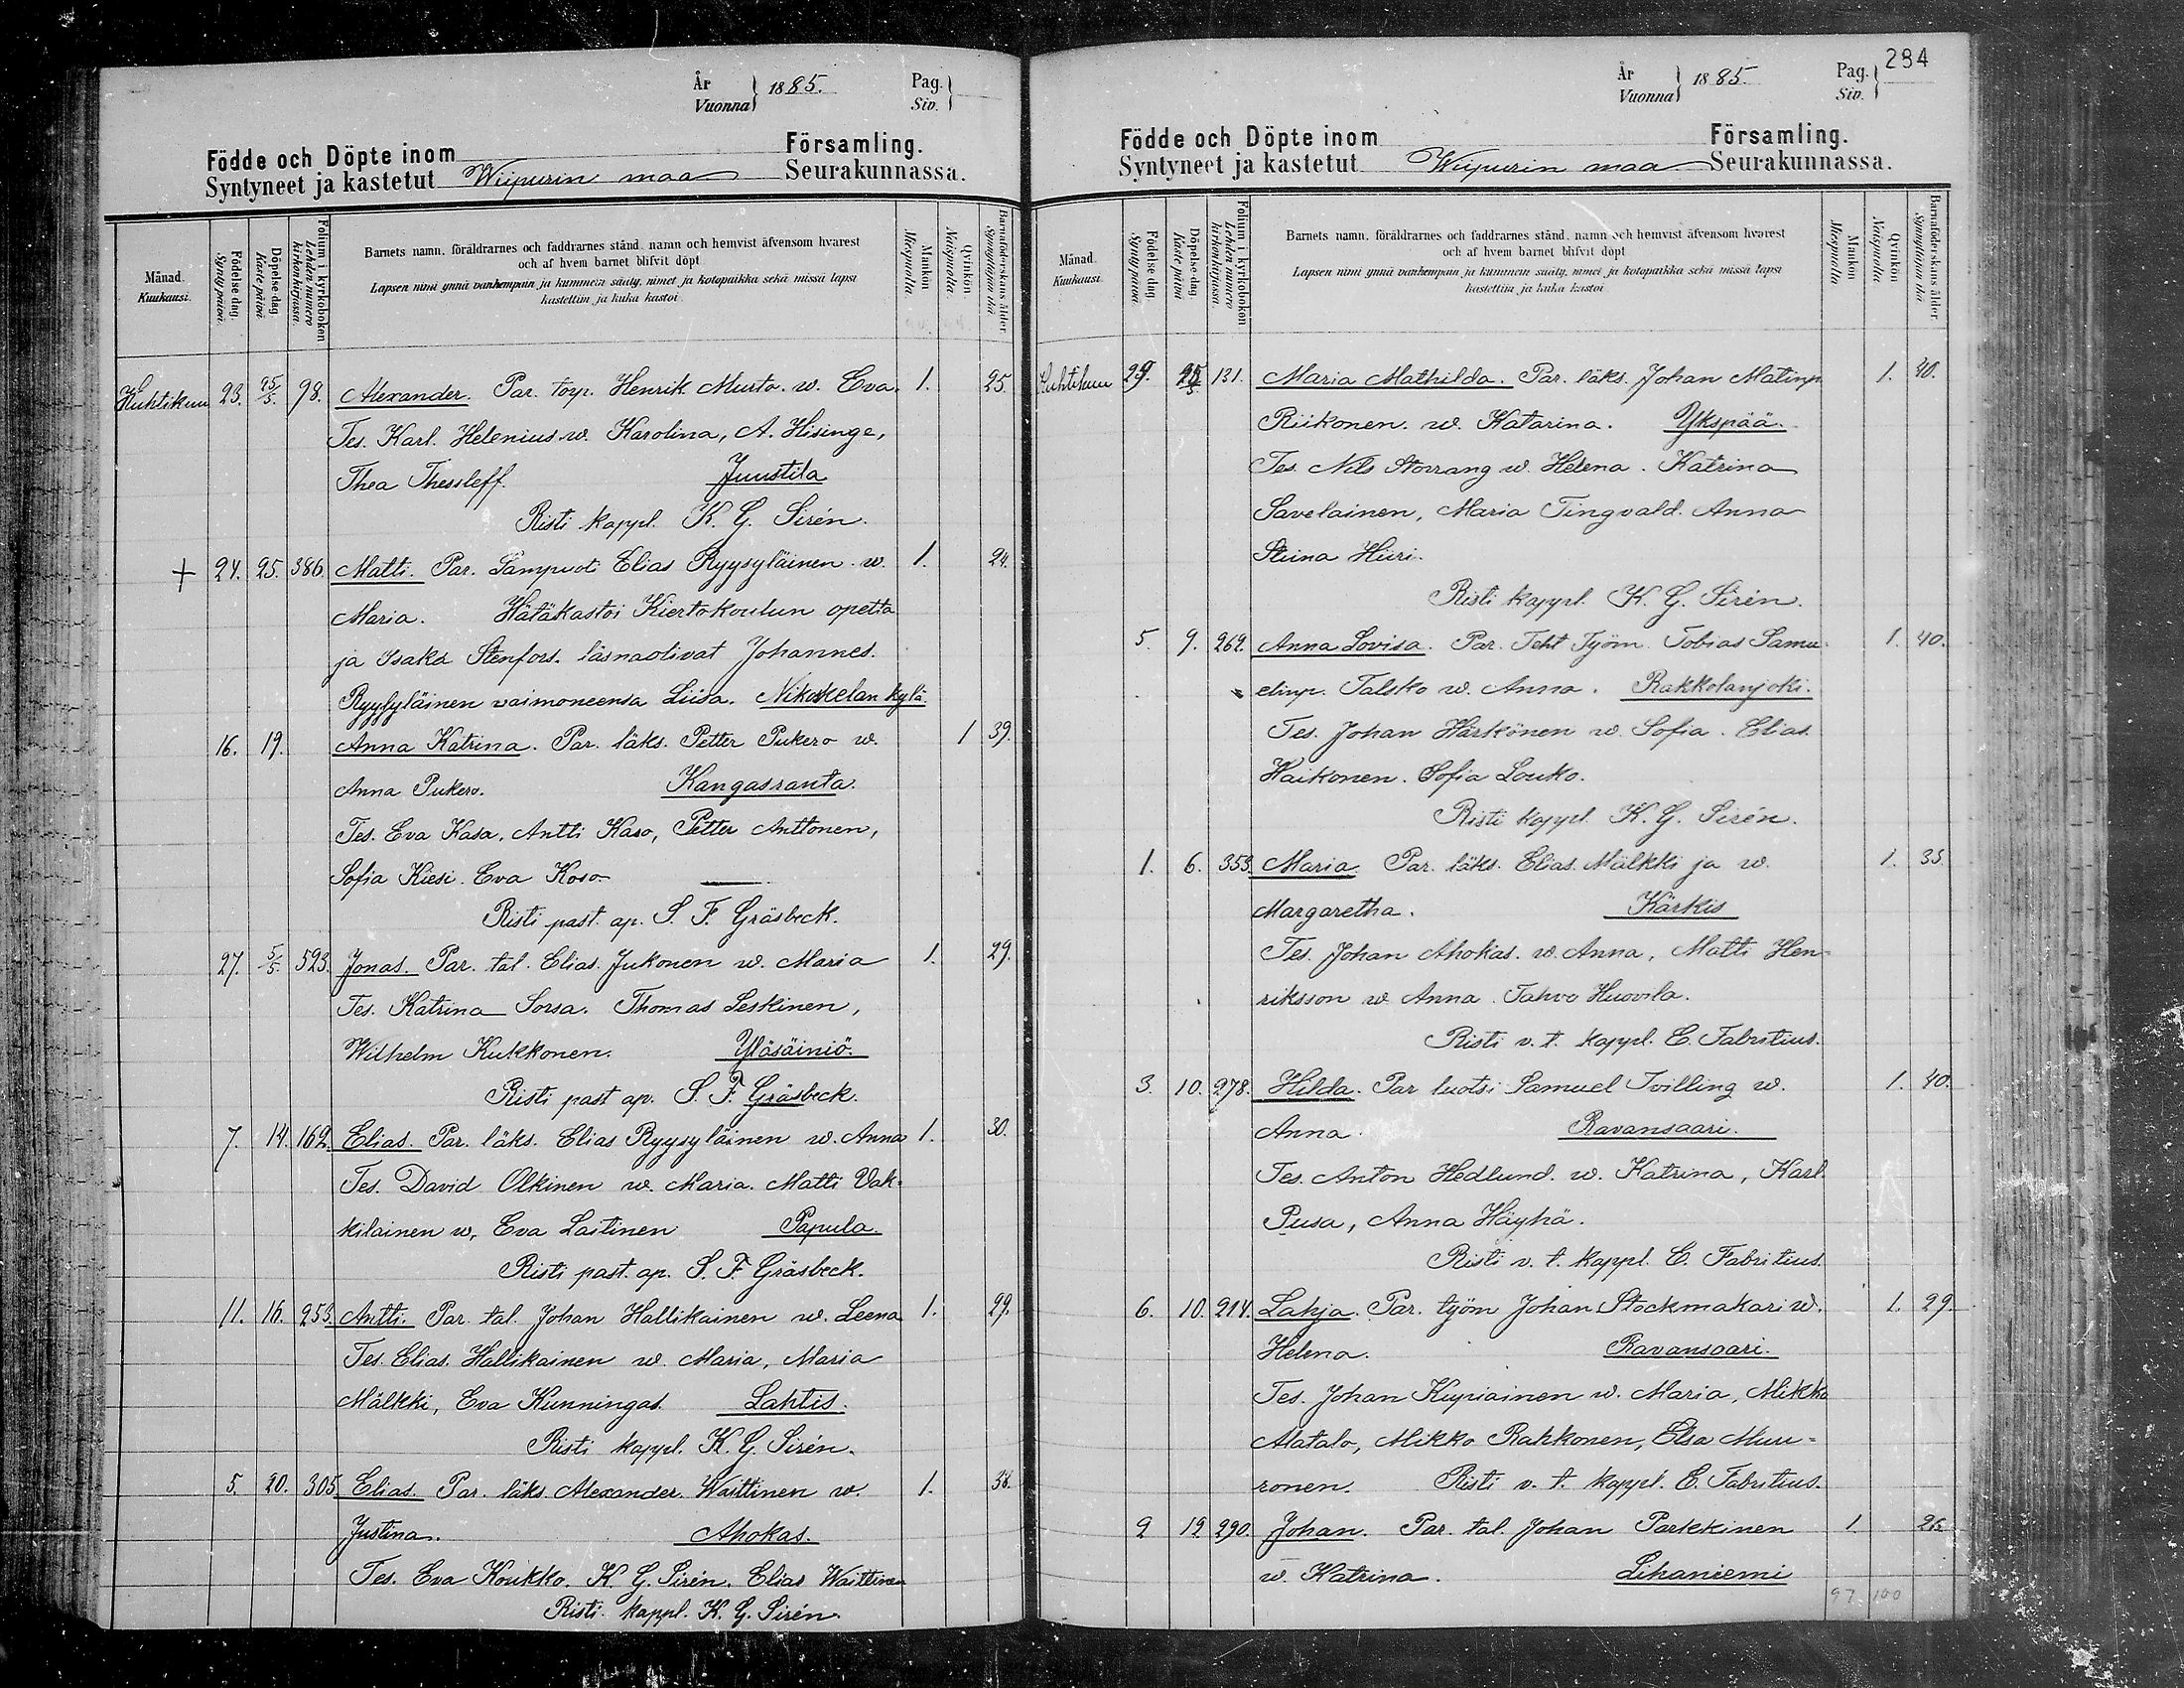 År Vuonna } 1885. Pag. Siv. }
Födde och Döpte inom Församling.
Syntyneet ja kastetut Wiipurin maa Seurakunnassa.
Månad. Kuukausi.
Födelse dag. Synty päivä.
Döpelse-dag. Kaste päivä
Folium i kyrkoboken Lehden numero kirkonkirjassa.
Barnets namn, föräldrarnes och faddrarnes stånd, namn och hemvist äfvensom hvarest
och af hvem barnet blifvit döpt
Lapsen nimi ynnä vanhempain ja kummein sääty, nimet ja kotopaikka sekä missä lapsi
kastettiin ja kuka kastoi.
Mankön Miespuolta
Qvinkön Naispuolta
Barnaföderskans ålder Synnyttäjän ikä
Huhtikuu 23. 25/5. 98. Alexander. Par. torp. Henrik Murto. w. Eva. 1. 25.
Tes. Karl. Helenius w. Karolina, A. Hisinge,
Thea Thessleff. Juustila
Risti kappl. K. G. Sirén.
+ 24. 25. 386. Matti. Par. Elias Ryysyläinen. w. 1. 24.
Maria. Hätäkastoi Kiertokoulun opetta
ja Isaka Stenfors. läsnäolivat Johannes.
Ryysyläinen vaimoneensa Liisa. Nikuskelan kylä.
16. 19. Anna Katrina. Par. läks. Petter Pukero w. 1 39.
Anna Pukero. Kangasranta.
Tes. Eva Kasa, Antti Kaso, Petter Anttonen,
Sofia Kiesi. Eva Koso
Risti past. ap. S. F. Gräsbeck.
27. 5/5. 523. Jonas. Par. tal. Elias. Jukonen w. Maria 1. 29.
Tes. Katrina Sorsa. Thomas Leskinen,
Wilhelm Kukkonen. Yläsäiniö.
Risti past ap. S. F. Gräsbeck.
7. 14. 162. Elias. Par. läks. Elias Ryysyläinen w. Anna 1. 30.
Tes. David Olkinen w. Maria. Matti Vak-
kilainen w, Eva Laitinen Papula.
Risti past. ap. S. F. Gräsbeck.
11. 16. 253. Antti. Par. tal. Johan Hallikainen w. Leena 1. 29.
Tes. Elias. Hallikainen w. Maria, Maria
Mälkki, Eva Kunningas. Lahtis.
Risti kappl. K. G. Sirén.
5. 20. 305. Elias. Par. läks. Alexander. Waittinen w. 1. 38.
Justina. Ahokas.
Tes. Eva Koukko. K. G. Sirén. Elias Waittinen
Risti kappl. K. G. Sirén.
År Vuonna } 1885. Pag. Siv. } 284
Födde och Döpte inom Församling.
Syntyneet ja kastetut Wiipurin maa Seurakunnassa.
Månad. Kuukausi.
Födelse dag. Synty päivä.
Döpelse-dag Kaste päivä
Folium i kyrkoboken Lehden numero kirkonkirjassa.
Barnets namn, föräldrarnes och faddrarnes stånd, namn och hemvist äfvensom hvarest
och af hvem barnet blifvit döpt
Lapsen nimi ynnä vanhempain ja kummein sääty, nimet ja kotopaikka sekä missä lapsi
kastettiin ja kuka kastoi
Mankön Miespuolta
Qvinkön Naispuolta
Barnaföderskans ålder. Synnyttäjän ikä
Huhtikuu 29. 25/5 131. Maria Mathilda. Par. läks. Johan Matinp. 1. 40.
Riikonen. w. Katarina. Ykspää.
Tes. Nils Storrang w. Helena. Katrina
Savelainen, Maria Tingvald. Anna
Stiina Hiiri.
Risti kappl. K. G. Sirén.
5. 9. 262. Anna Lovisa. Par. Teht Työm. Tobias Samu- 1. 40.
elinp. Talsko w. Anna. Rakkolanjoki.
Tes. Johan Härkönen w. Sofia. Elias.
Haikonen. Sofia Louko.
Risti kappl. K. G. Sirén.
1. 6. 353. Maria. Par. läks. Elias. Mälkki ja w. 1. 35.
Margaretha. Kärkis
Tes. Johan Ahokas. w. Anna, Matti Hen-
riksson w Anna. Tahvo Huovila.
Risti v. t. kappl. E. Fabritius.
3. 10. 278. Hilda. Par luotsi Samuel Tvilling w. 1. 40.
Anna. Ravansaari.
Tes. Anton Hedlund. w. Katrina, Karl.
Pusa, Anna Häyhä.
Risti v. t. kappl. E. Fabritius.
6. 10. 214. Lahja. Par. työm Johan Stockmakari w. 1. 29.
Helena. Ravansaari.
Tes. Johan Kupiainen w. Maria, Mikko
Alatalo, Mikko Rahkonen, Elsa Muu-
ronen. Risti v. t. kappl. E. Fabritius.
2 12 290. Johan. Par. tal. Johan Parkkinen 1 26.
w. Katrina. Lihaniemi
97 100